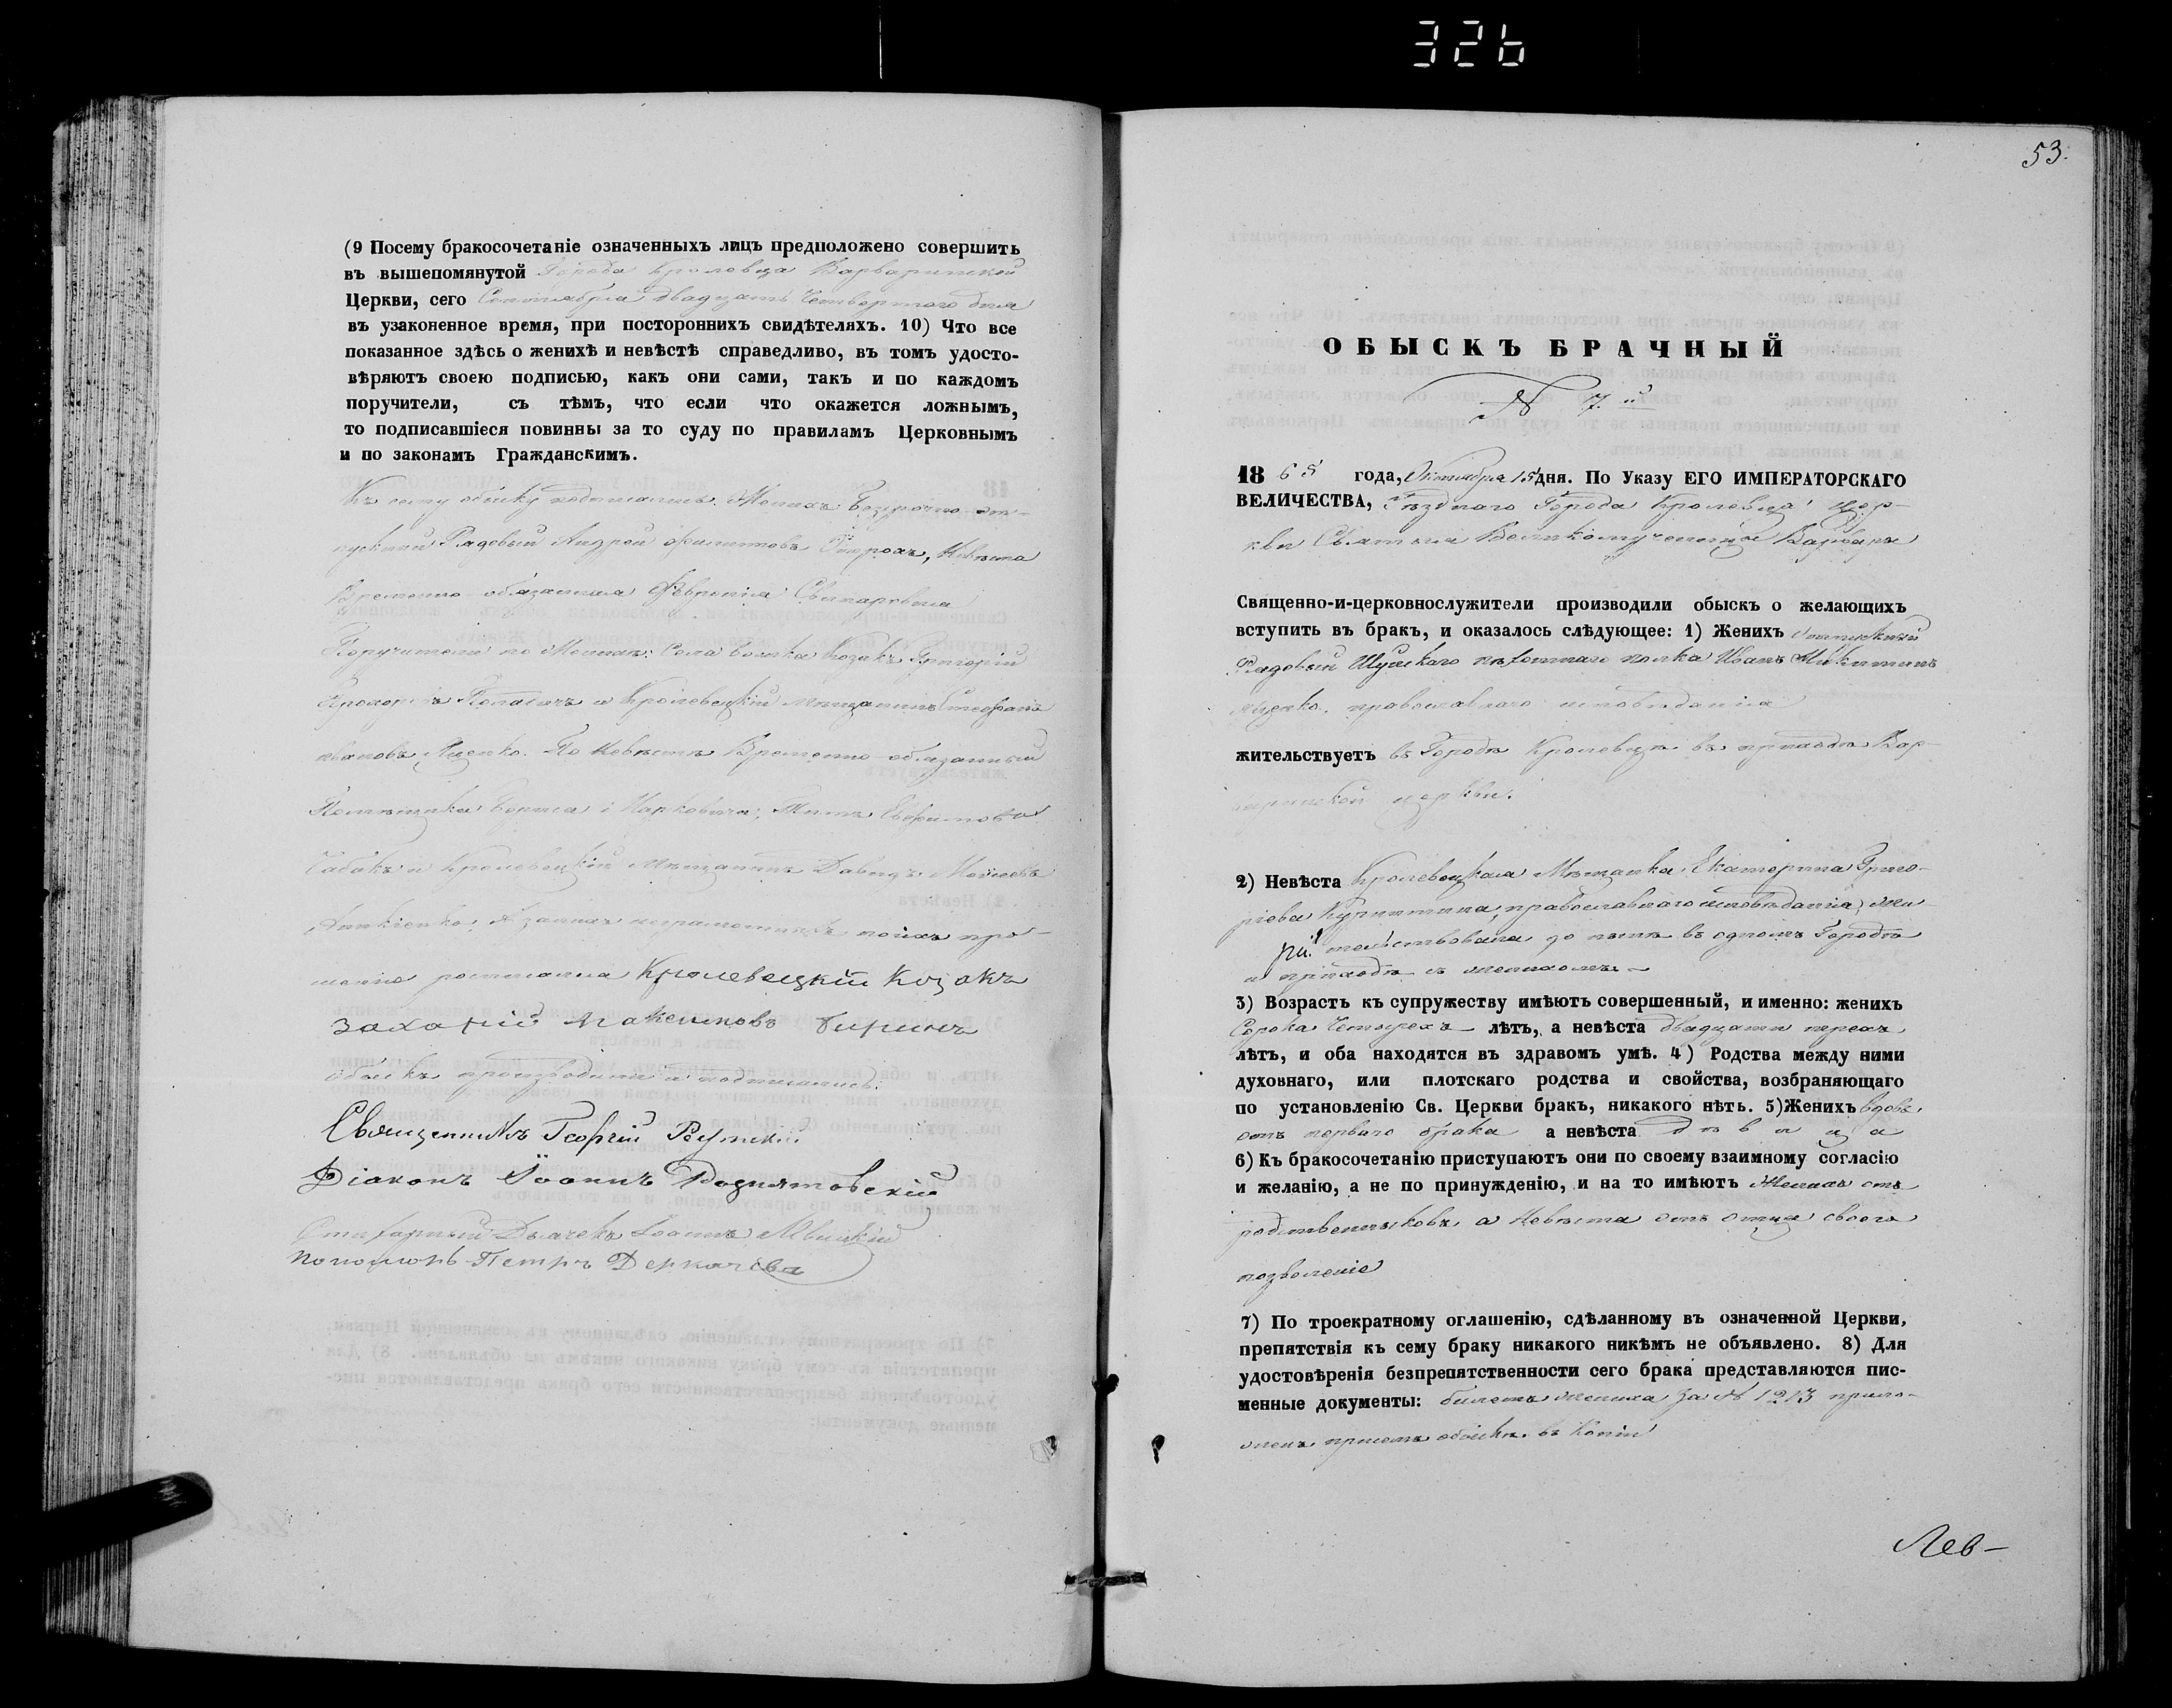 326
(9 Посему бракосочетаніе означенныхъ лицъ предположено совершить
въ вышепомянутой Города Кролевца Варваринской
Церкви, сего Сентября двадцать Четвертаго дня
въ узаконенное время, при постороннихъ свидѣтеляхъ. 10) Что все
показанное здѣсь о женихѣ и невѣстѣ справедливо, въ томъ удосто-
вѣряютъ своею подписью, какъ они сами, такъ и по каждомъ
поручители, съ тѣмъ, что если что окажется ложнымъ,
то подписавшіеся повинны за то суду по правиламъ Церковнымъ
и по законамъ Гражданскимъ.
Къ сему обыску подписались. Женихъ Безсрочно-от-
пускный Рядовый Андрей Филиповъ Невѣста
Временно-обязанная Февронія
Поручители по Женихѣ: Села Козакъ Григорій
и Кролевецкій Мѣщанинъ Стефанъ
Ивановъ Яценко. По Невѣстѣ Временно-обязанный
Помѣщика Марковича, Титъ
и Кролевецкій Мѣщанинъ Давидъ Моисеевъ
а за нихъ неграмотныхъ по ихъ про-
шенію росписался Кролевецкій Козакъ
Захарій Биринъ
Обыскъ производили и подписались.
Священникъ Георгій
Діаконъ Іоаннъ
Дьячекъ Іоаннъ
Пономарь Петръ Деркачевъ
53.
ОБЫСКЪ БРАЧНЫЙ
№ 7.й
18 65 года, Октября 15 дня. По Указу ЕГО ИМПЕРАТОРСКАГО
ВЕЛИЧЕСТВА, Уѣзднаго Города Кролевца Цер-
кви Святыя Великомученицы Варвары
Священно-и-церковнослужители производили обыскъ о желающихъ
вступить въ бракъ, и оказалось слѣдующее: 1) Женихъ Отпускный
Рядовый Шуйскаго пѣхотнаго полка Иванъ Никитинъ
Яценко, православнаго исповѣданія
жительствуетъ въ Городѣ Кролевцѣ въ приходѣ Вар-
варинской церкви.
2) Невѣста Кролевецкая Мѣщанка Екатерина Григо-
ріева православнаго исповѣданія, жи-
тельствовала до нынѣ въ одномъ Городѣ
и приходѣ съ женихомъ
3) Возрастъ къ супружеству имѣютъ совершенный, и именно: женихъ
Сорока Четырехъ лѣтъ, а невѣста двадцати трехъ
лѣтъ, и оба находятся въ здравомъ умѣ. 4) Родства между ними
духовнаго, или плотскаго родства и свойства, возбраняющаго
по установленію Св. Церкви бракъ, никакого нѣтъ. 5)Женихъ вдовъ
отъ перваго брака а невѣста дѣвица
6) Къ бракосочетанію приступаютъ они по своему взаимному согласію
и желанію, а не по принужденію, и на то имѣютъ Женихъ отъ
родственниковъ а Невѣста отъ отца своего
позволеніе
7) По троекратному оглашенію, сдѣланному въ означенной Церкви,
препятствія къ сему браку никакого никѣмъ не объявлено. 8) Для
удостовѣренія безпрепятственности сего брака представляются пис-
менные документы: билетъ жениха за № 1213 прило-
женъ при семъ обыскѣ въ копіи
Лев-